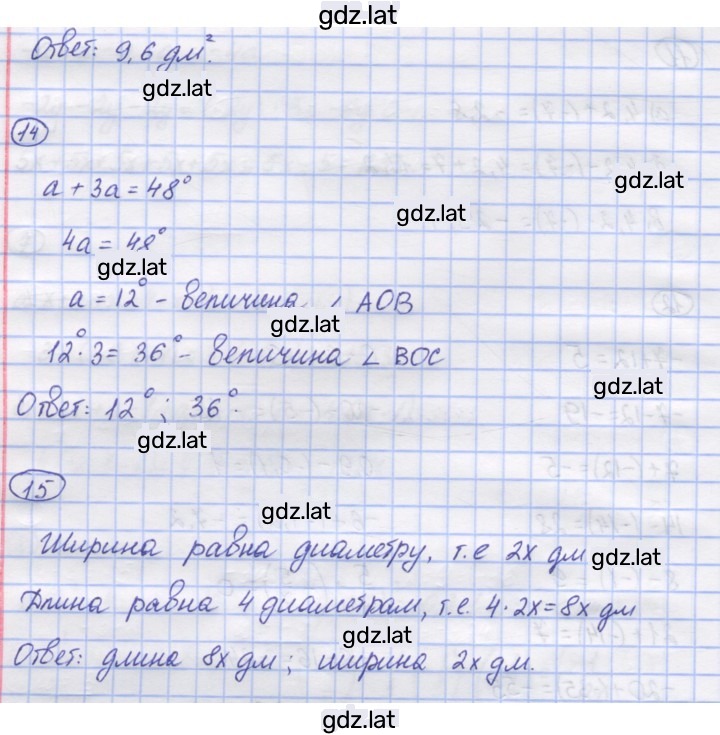 gdz.lat
Ответ: 9,6 дм².
gdz.lat
14
a + 3a = 48°
gdz.lat
gdz.lat
4a = 48°
gdz.lat
a = 12° - величина ∠ AOB
gdz.lat
12° · 3 = 36° - величина ∠ BOC
gdz.lat
Ответ: 12°; 36°.
gdz.lat
15
gdz.lat
Ширина равна диаметру, т.е 2x дм
gdz.lat
Длина равна 4 диаметрам, т.е. 4 · 2x = 8x дм
gdz.lat
Ответ: длина 8x дм; ширина 2x дм.
gdz.lat